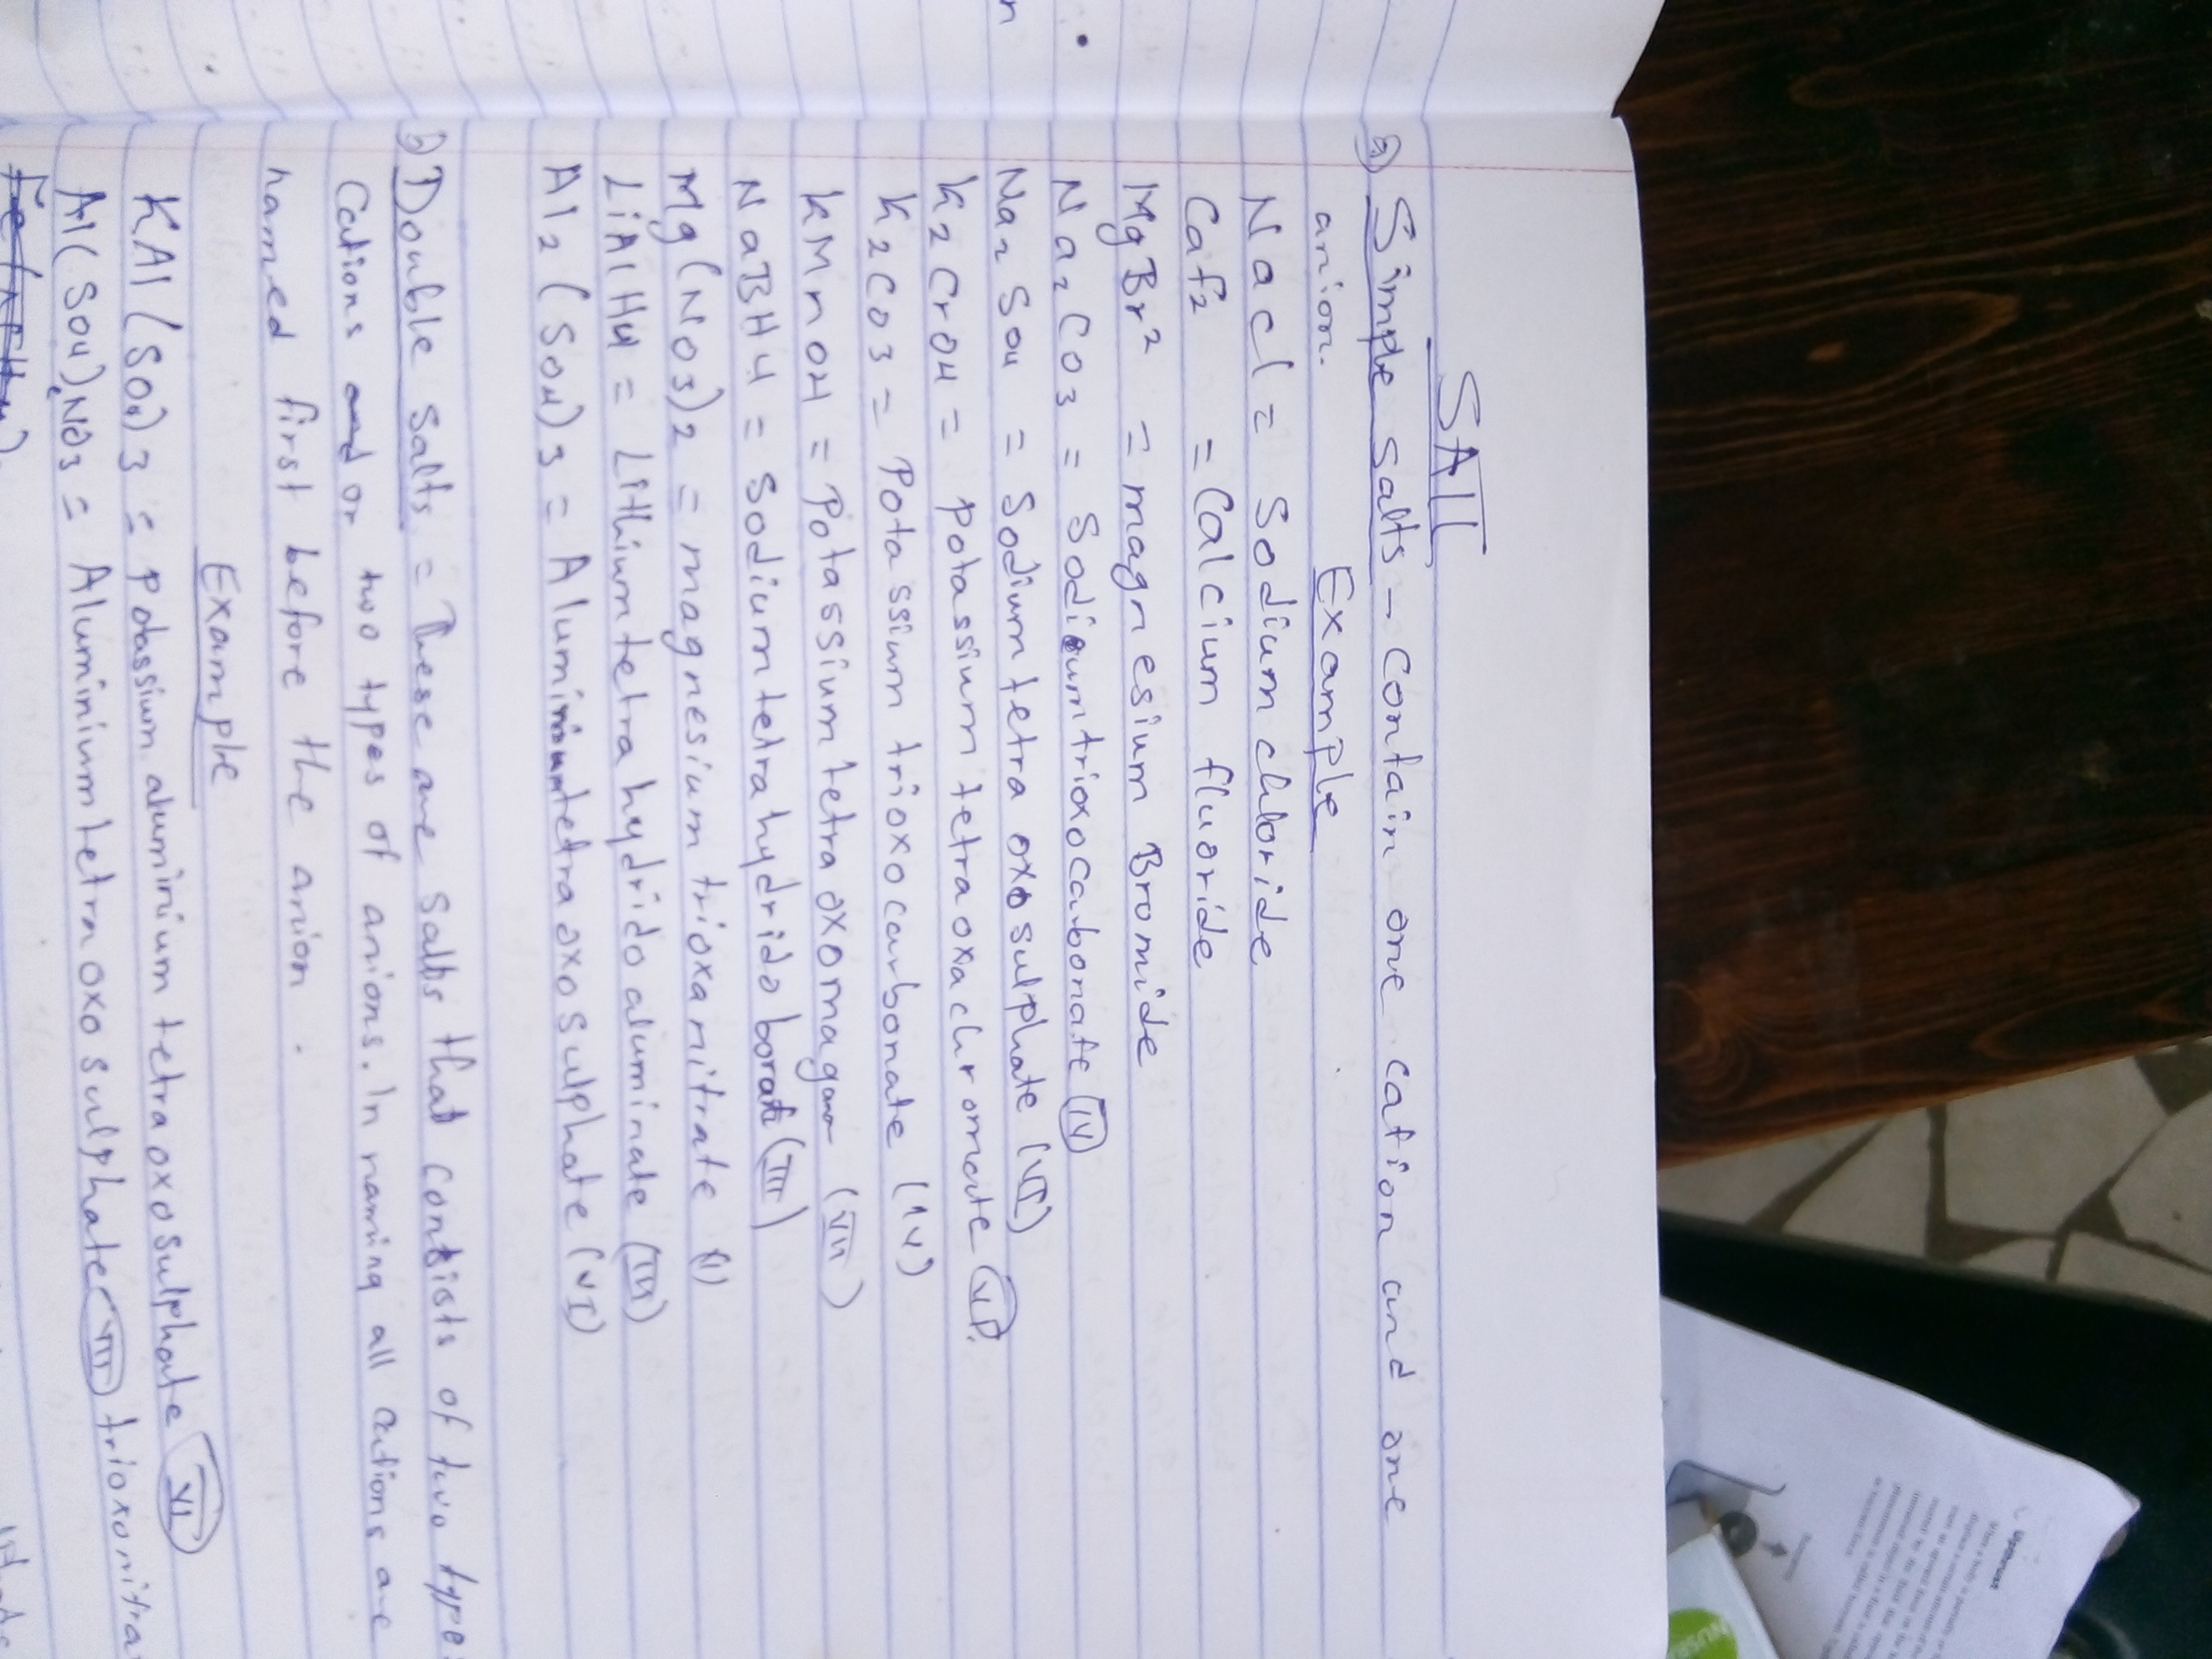 SALT
a) Simple salts - contain one cation and one
anion.
Example
Nacl = Sodium chloride
Caf2 = Calcium fluoride
MgBr2 = magnesium Bromide
Na2CO3 = Sodium trioxocarbonate (IV)
Na2SO4 = Sodium tetra oxosulphate (VI)
K2CrO4 = potassium tetraoxachromate (VI).
K2CO3 = Potassium trioxocarbonate (IV)
KMnO4 = Potassium tetraoxomagan (VII)
NaBH4 = Sodium tetrahydrido borate (III)
Mg(NO3)2 = magnesium trioxanitrate (V)
LiAlH4 = Lithium tetrahydrido aluminate (III)
Al2(SO4)3 = Aluminium tetraoxosulphate (VI)
b) Double Salts = These are salts that consists of two types
Cations or two types of anions. In naming all cations are
named first before the anion.
Example
KAl(SO4)3 = potassium aluminium tetraoxosulphate (VI)
Al(SO4)NO3 = Aluminium tetraoxosulphate (VI) trioxonitra
Upthrust